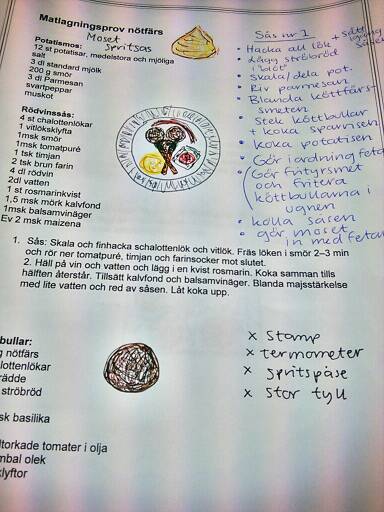 Matlagningsprov nötfärs
Potatismos: Moset
Spritsas
12 st potatisar, medelstora och mjöliga
salt
3 dl standard mjölk
200 g smör
3 dl Parmesan
svartpeppar
muskot
Rödvinssås:
4 st chalottenlökar
1 vitlöksklyfta
1msk smör
1msk tomatpuré
1 tsk timjan
2 tsk brun farin
4 dl rödvin
2dl vatten
1 st rosmarinkvist
1,5 msk mörk kalvfond
1msk balsamvinäger
Ev 2 msk maizena
Sås nr 1
• Hacka all lök
• Lägg ströbröd
i "blöt"
• Skala/dela pot.
• Riv parmesan
• Blanda köttfärs-
smeten
• Stek köttbullar
+ koka sparrisen
• Koka potatisen
• Gör i ordning fetaost
• Gör frityrsmet
och fritera
köttbullarna i
ugnen
• kolla såsen
• gör moset
in med feta
1. Sås: Skala och finhacka schalottenlök och vitlök. Fräs löken i smör 2–3 min
och rör ner tomatpuré, timjan och farinsocker mot slutet.
2. Häll på vin och vatten och lägg i en kvist rosmarin. Koka samman tills
hälften återstår. Tillsätt kalvfond och balsamvinäger. Blanda majsstärkelse
med lite vatten och red av såsen. Låt koka upp.
bullar:
g nötfärs
alottenlökar
rädde
ströbröd
sk basilika
ltorkade tomater i olja
mbal olek
klyftor
x Stamp
x termometer
x spritspåse
x stor tyll